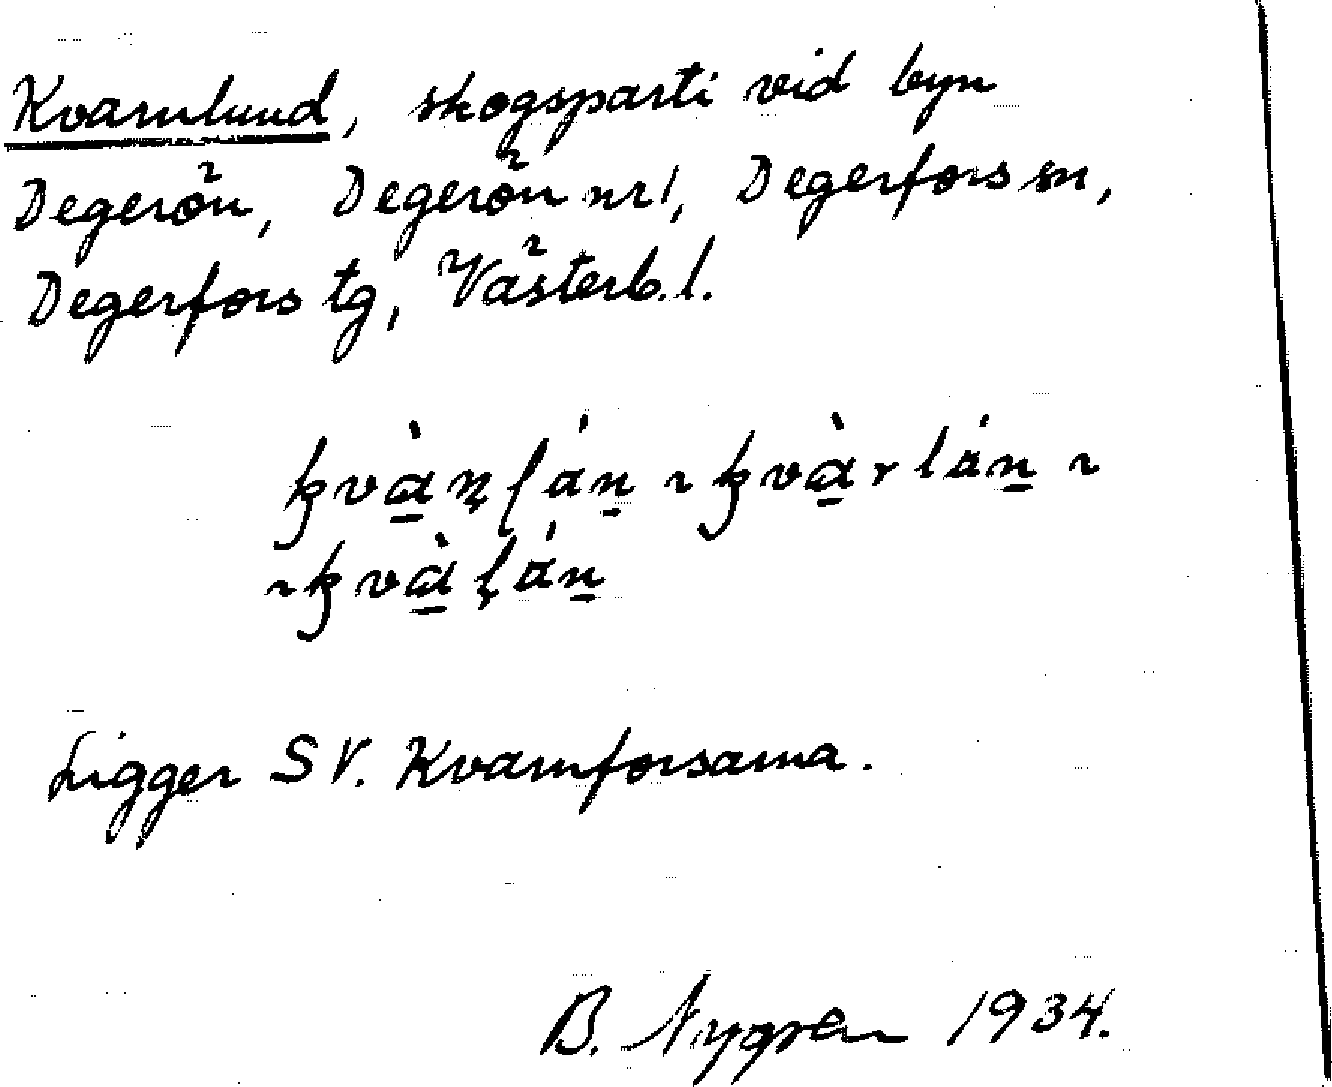 Kvarnlund, skogsparti vid byn
Degerön, Degerön nr 1, Degerfors sn,
Degerfors tg, Västerb. l.
Ligger SV. Kvarnforsarna.
B. Nygren 1934.